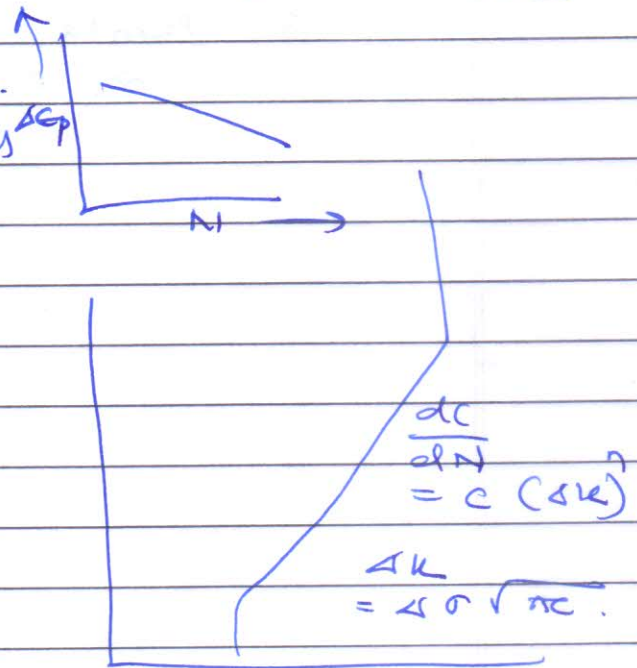 Δϵp
N
dc
dN
= c (Δk)^n
Δk
= Δσ √πc .